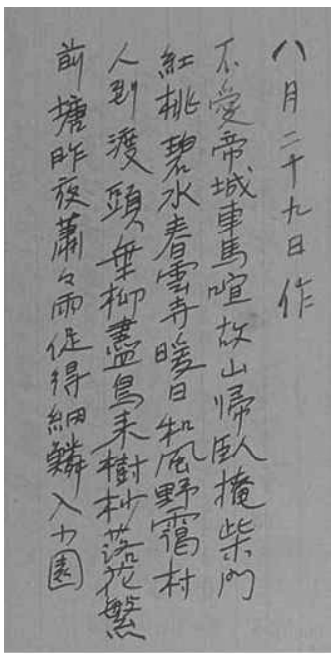 八月二十九日作
不愛帝城車馬喧故山帰臥掩柴門
紅桃碧水春雲寺暖日和風野靄村
人到渡頭垂柳盡鳥来樹杪落花繁
前塘昨夜蕭々雨促得細鱗入小園